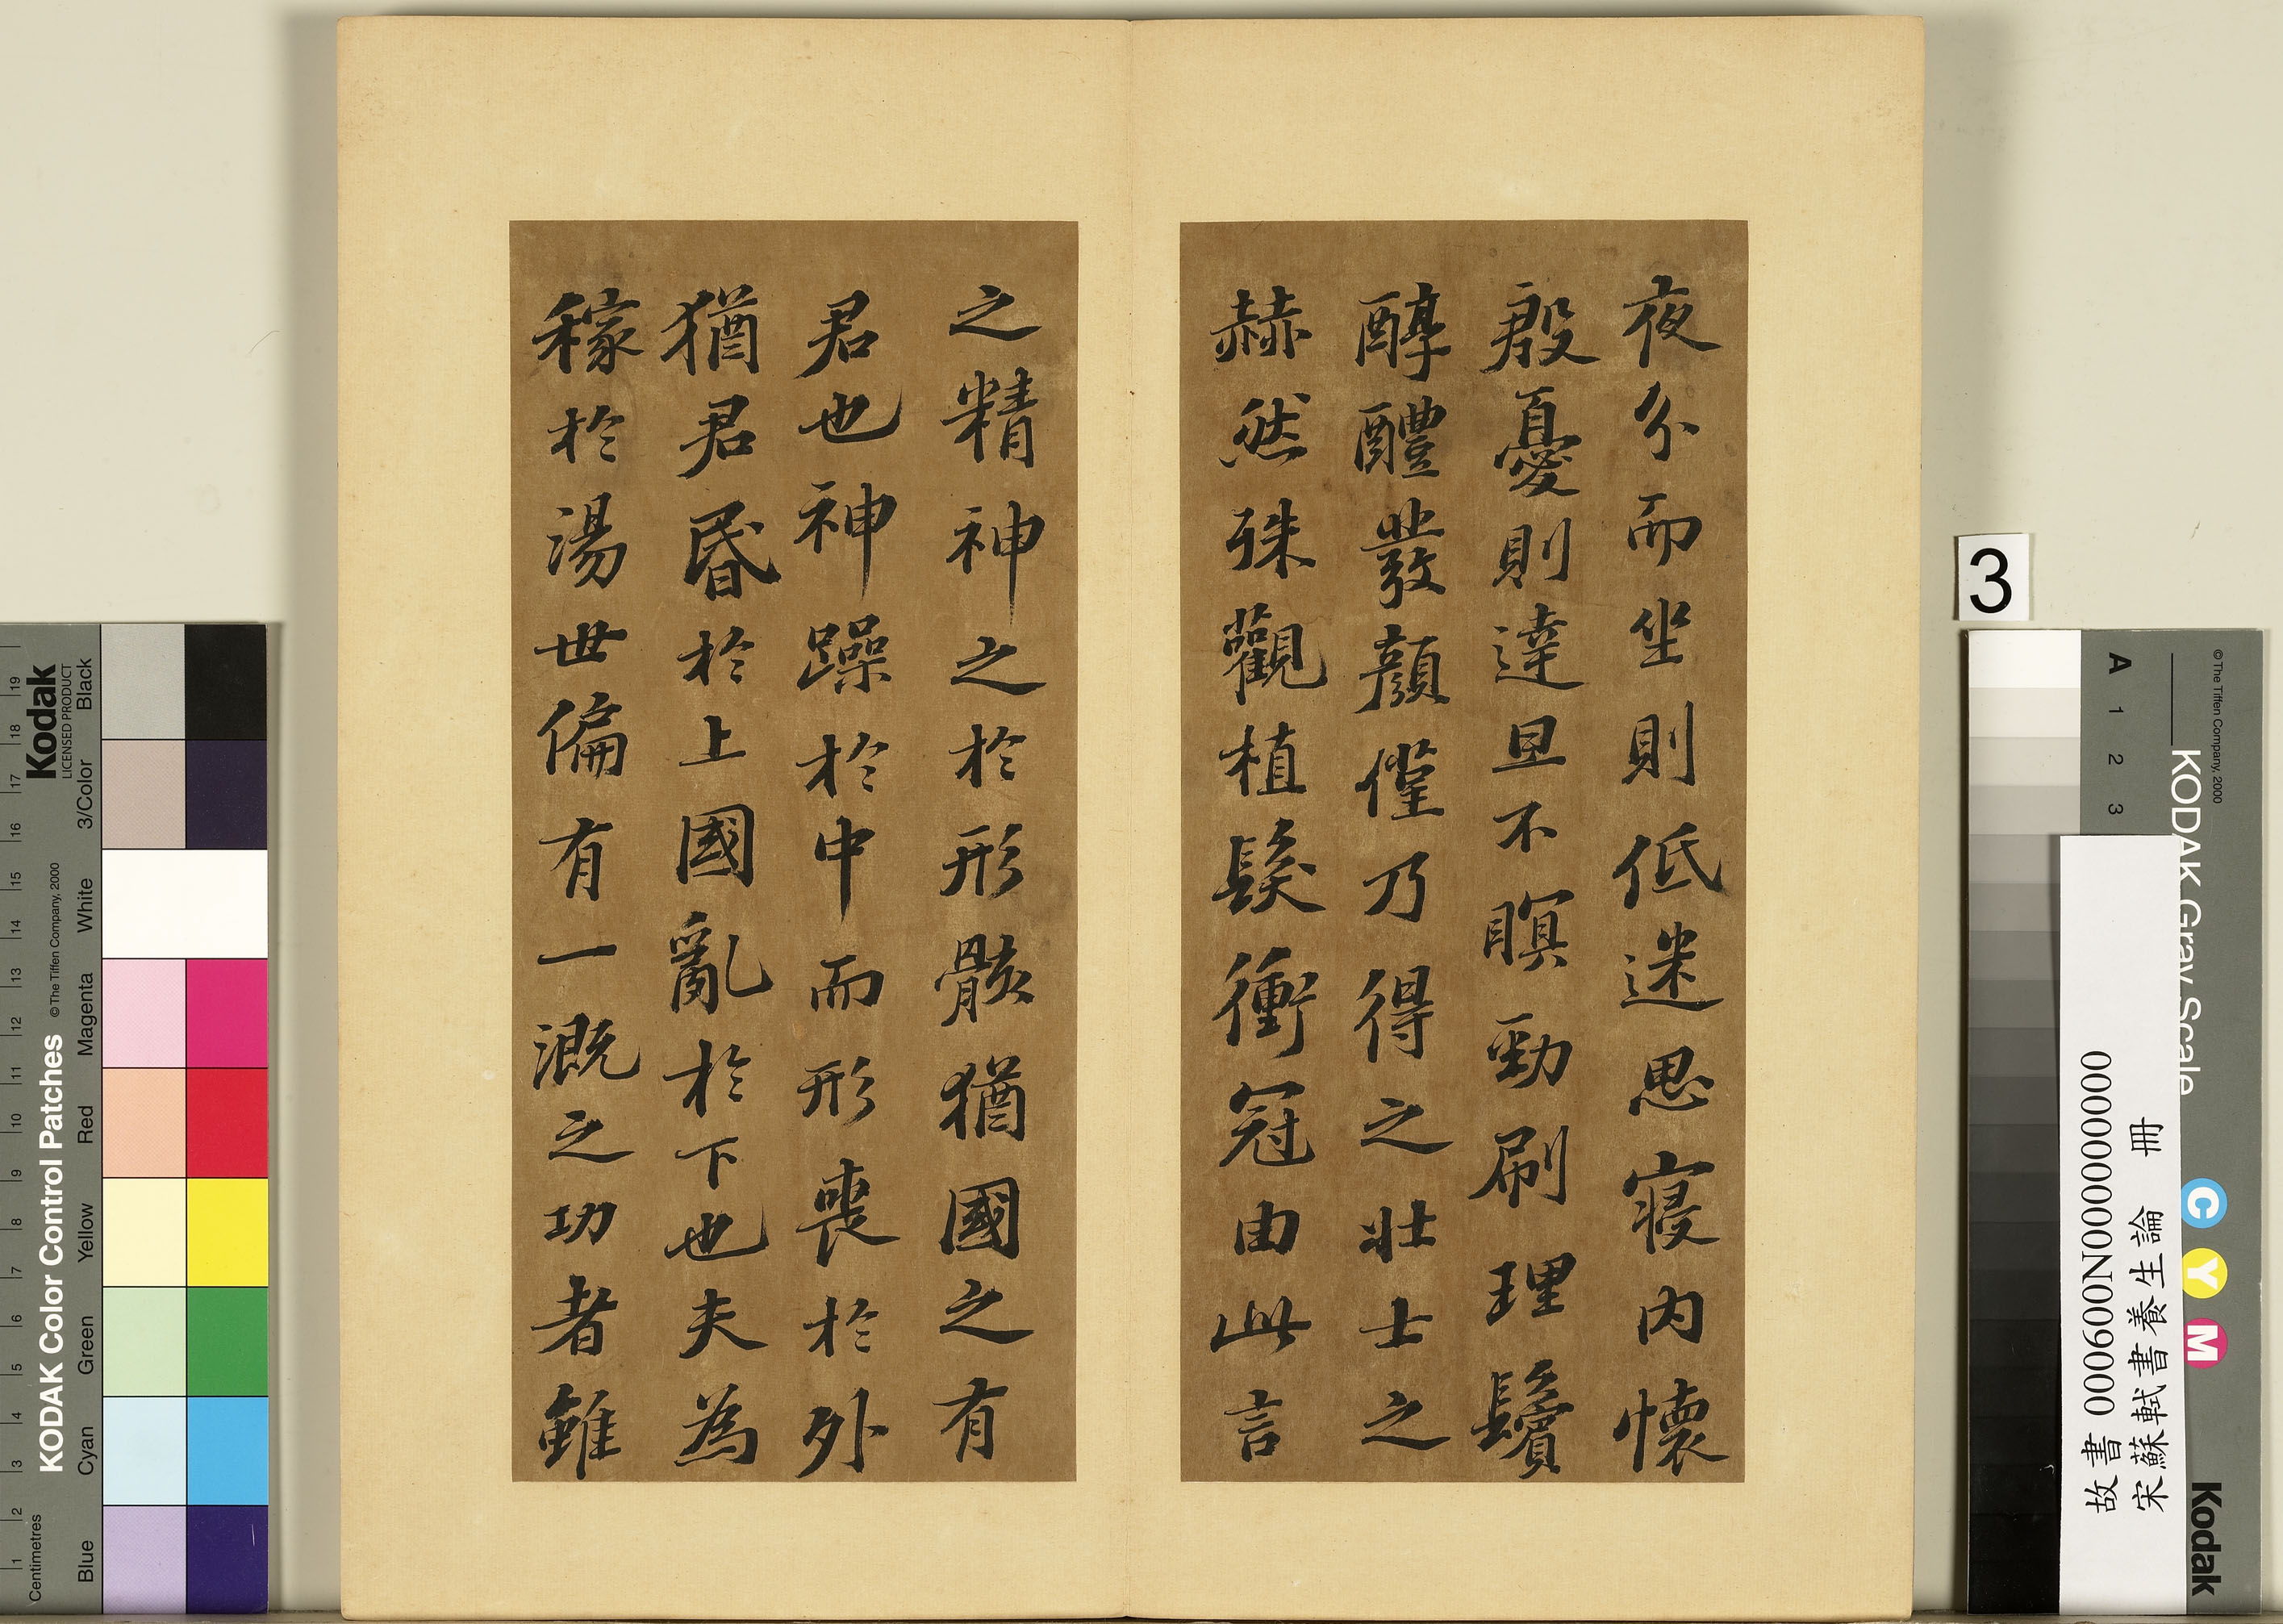 夜分而坐則低迷思寢內懷
殷憂則達旦不瞑勁刷理鬢
醇醴發顏僅乃得之壯士之
赫然殊觀植髮衝冠由此言
之精神之於形骸猶國之有
君也神躁於中而形喪於外
猶君昏於上國亂於下也夫為
稼於湯世偏有一溉之功者雖
3
故書 000600N000000000
宋蘇軾書養生論 冊
KODAK Gray Scale
© The Tiffen Company, 2000
A 1 2 3
C Y M
Kodak
Kodak
LICENSED PRODUCT
KODAK Color Control Patches
© The Tiffen Company, 2000
Blue Cyan Green Yellow Red Magenta White 3/Color Black
Centimetres
1 2 3 4 5 6 7 8 9 10 11 12 13 14 15 16 17 18 19